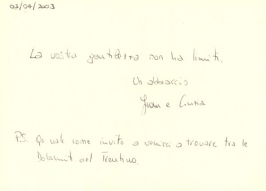 03/04/2003
La vostra gentilezza non ha limiti.
Un abbraccio
e
PS. vale come invito a venirci a trovare tra le
Dolomiti del Trentino